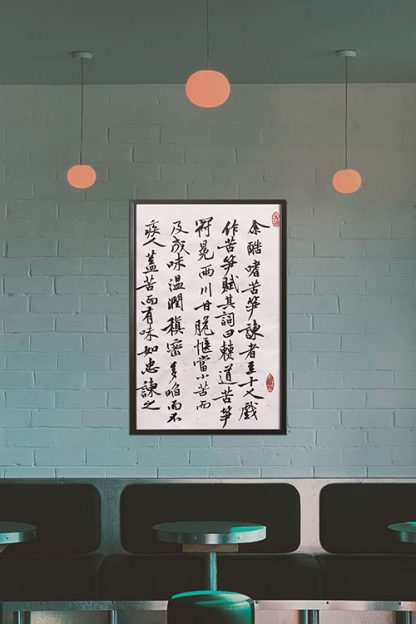 余酷嗜苦笋諫者至十人戲
作苦笋賦其詞曰僰道苦笋
冠冕两川甘脆愜當小苦而
反成味温潤縝密多啗而不
疾人蓋苦而有味如忠諫之